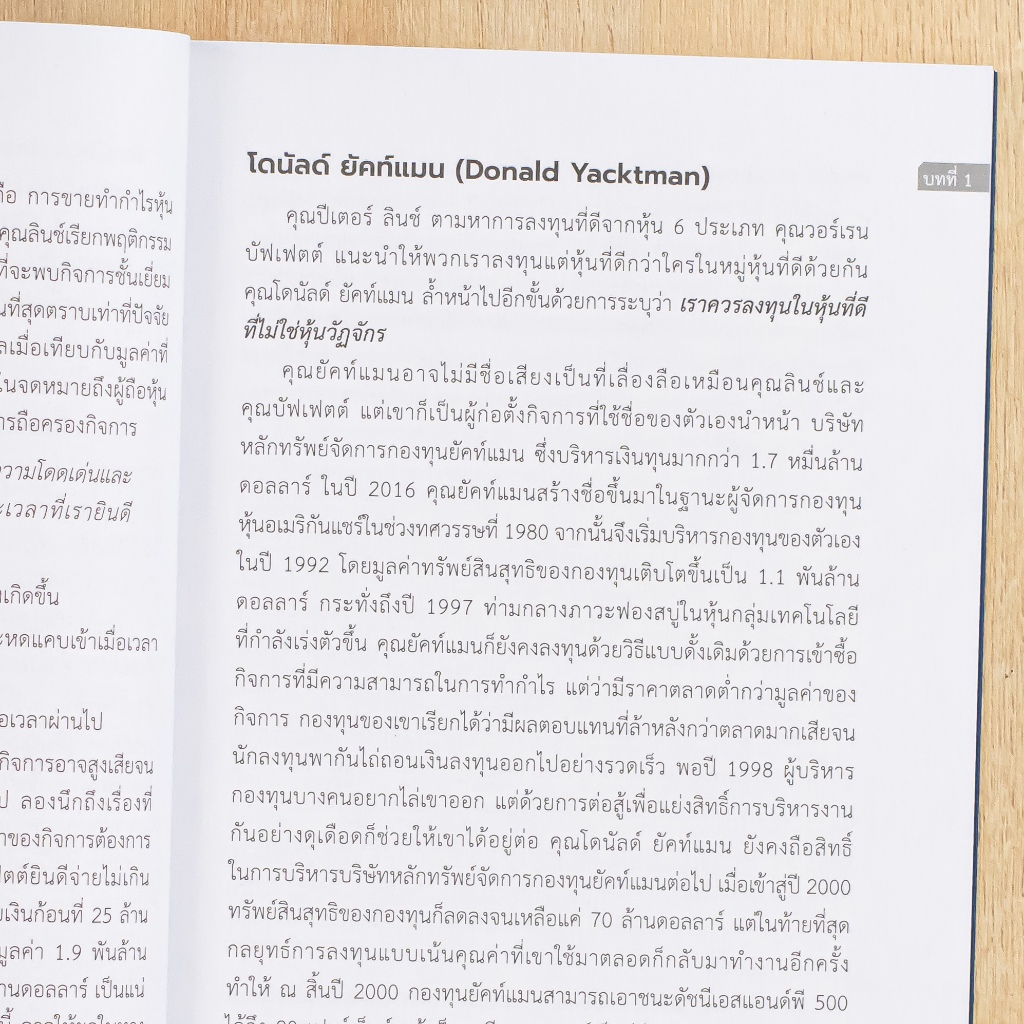 การขายทำกำไรหุ้น
คุณลินช์เรียกพฤติกรรม
ที่จะพบกิจการชั้นเยี่ยม
นที่สุดตราบเท่าที่ปัจจัย
ลเมื่อเทียบกับมูลค่าที่
ในจดหมายถึงผู้ถือหุ้น
ารถือครองกิจการ
ความโดดเด่นและ
ะเวลาที่เรายินดี
เกิดขึ้น
ะหดแคบเข้าเมื่อเวลา
อเวลาผ่านไป
กิจการอาจสูงเสียจน
ป ลองนึกถึงเรื่องที่
าของกิจการต้องการ
ฟตต์ยินดีจ่ายไม่เกิน
ยเงินก้อนที่ 25 ล้าน
มูลค่า 1.9 พันล้าน
านดอลลาร์ เป็นแน่
บทที่ 1
โดนัลด์ ยัคท์แมน (Donald Yacktman)
คุณปีเตอร์ ลินช์ ตามหาการลงทุนที่ดีจากหุ้น 6 ประเภท คุณวอร์เรน
บัฟเฟตต์ แนะนำให้พวกเราลงทุนแต่หุ้นที่ดีกว่าใครในหมู่หุ้นที่ดีด้วยกัน
คุณโดนัลด์ ยัคท์แมน ล้ำหน้าไปอีกขั้นด้วยการระบุว่า เราควรลงทุนในหุ้นที่ดี
ที่ไม่ใช่หุ้นวัฏจักร
คุณยัคท์แมนอาจไม่มีชื่อเสียงเป็นที่เลื่องลือเหมือนคุณลินช์และ
คุณบัฟเฟตต์ แต่เขาก็เป็นผู้ก่อตั้งกิจการที่ใช้ชื่อของตัวเองนำหน้า บริษัท
หลักทรัพย์จัดการกองทุนยัคท์แมน ซึ่งบริหารเงินทุนมากกว่า 1.7 หมื่นล้าน
ดอลลาร์ ในปี 2016 คุณยัคท์แมนสร้างชื่อขึ้นมาในฐานะผู้จัดการกองทุน
หุ้นอเมริกันแชร์ในช่วงทศวรรษที่ 1980 จากนั้นจึงเริ่มบริหารกองทุนของตัวเอง
ในปี 1992 โดยมูลค่าทรัพย์สินสุทธิของกองทุนเติบโตขึ้นเป็น 1.1 พันล้าน
ดอลลาร์ กระทั่งถึงปี 1997 ท่ามกลางภาวะฟองสบู่ในหุ้นกลุ่มเทคโนโลยี
ที่กำลังเร่งตัวขึ้น คุณยัคท์แมนก็ยังคงลงทุนด้วยวิธีแบบดั้งเดิมด้วยการเข้าซื้อ
กิจการที่มีความสามารถในการทำกำไร แต่ว่ามีราคาตลาดต่ำกว่ามูลค่าของ
กิจการ กองทุนของเขาเรียกได้ว่ามีผลตอบแทนที่ล้าหลังกว่าตลาดมากเสียจน
นักลงทุนพากันไถ่ถอนเงินลงทุนออกไปอย่างรวดเร็ว พอปี 1998 ผู้บริหาร
กองทุนบางคนอยากไล่เขาออก แต่ด้วยการต่อสู้เพื่อแย่งสิทธิ์การบริหารงาน
กันอย่างดุเดือดก็ช่วยให้เขาได้อยู่ต่อ คุณโดนัลด์ ยัคท์แมน ยังคงถือสิทธิ์
ในการบริหารบริษัทหลักทรัพย์จัดการกองทุนยัคท์แมนต่อไป เมื่อเข้าสู่ปี 2000
ทรัพย์สินสุทธิของกองทุนก็ลดลงจนเหลือแค่ 70 ล้านดอลลาร์ แต่ในท้ายที่สุด
กลยุทธ์การลงทุนแบบเน้นคุณค่าที่เขาใช้มาตลอดก็กลับมาทำงานอีกครั้ง
ทำให้ ณ สิ้นปี 2000 กองทุนยัคท์แมนสามารถเอาชนะดัชนีเอสแอนด์พี 500